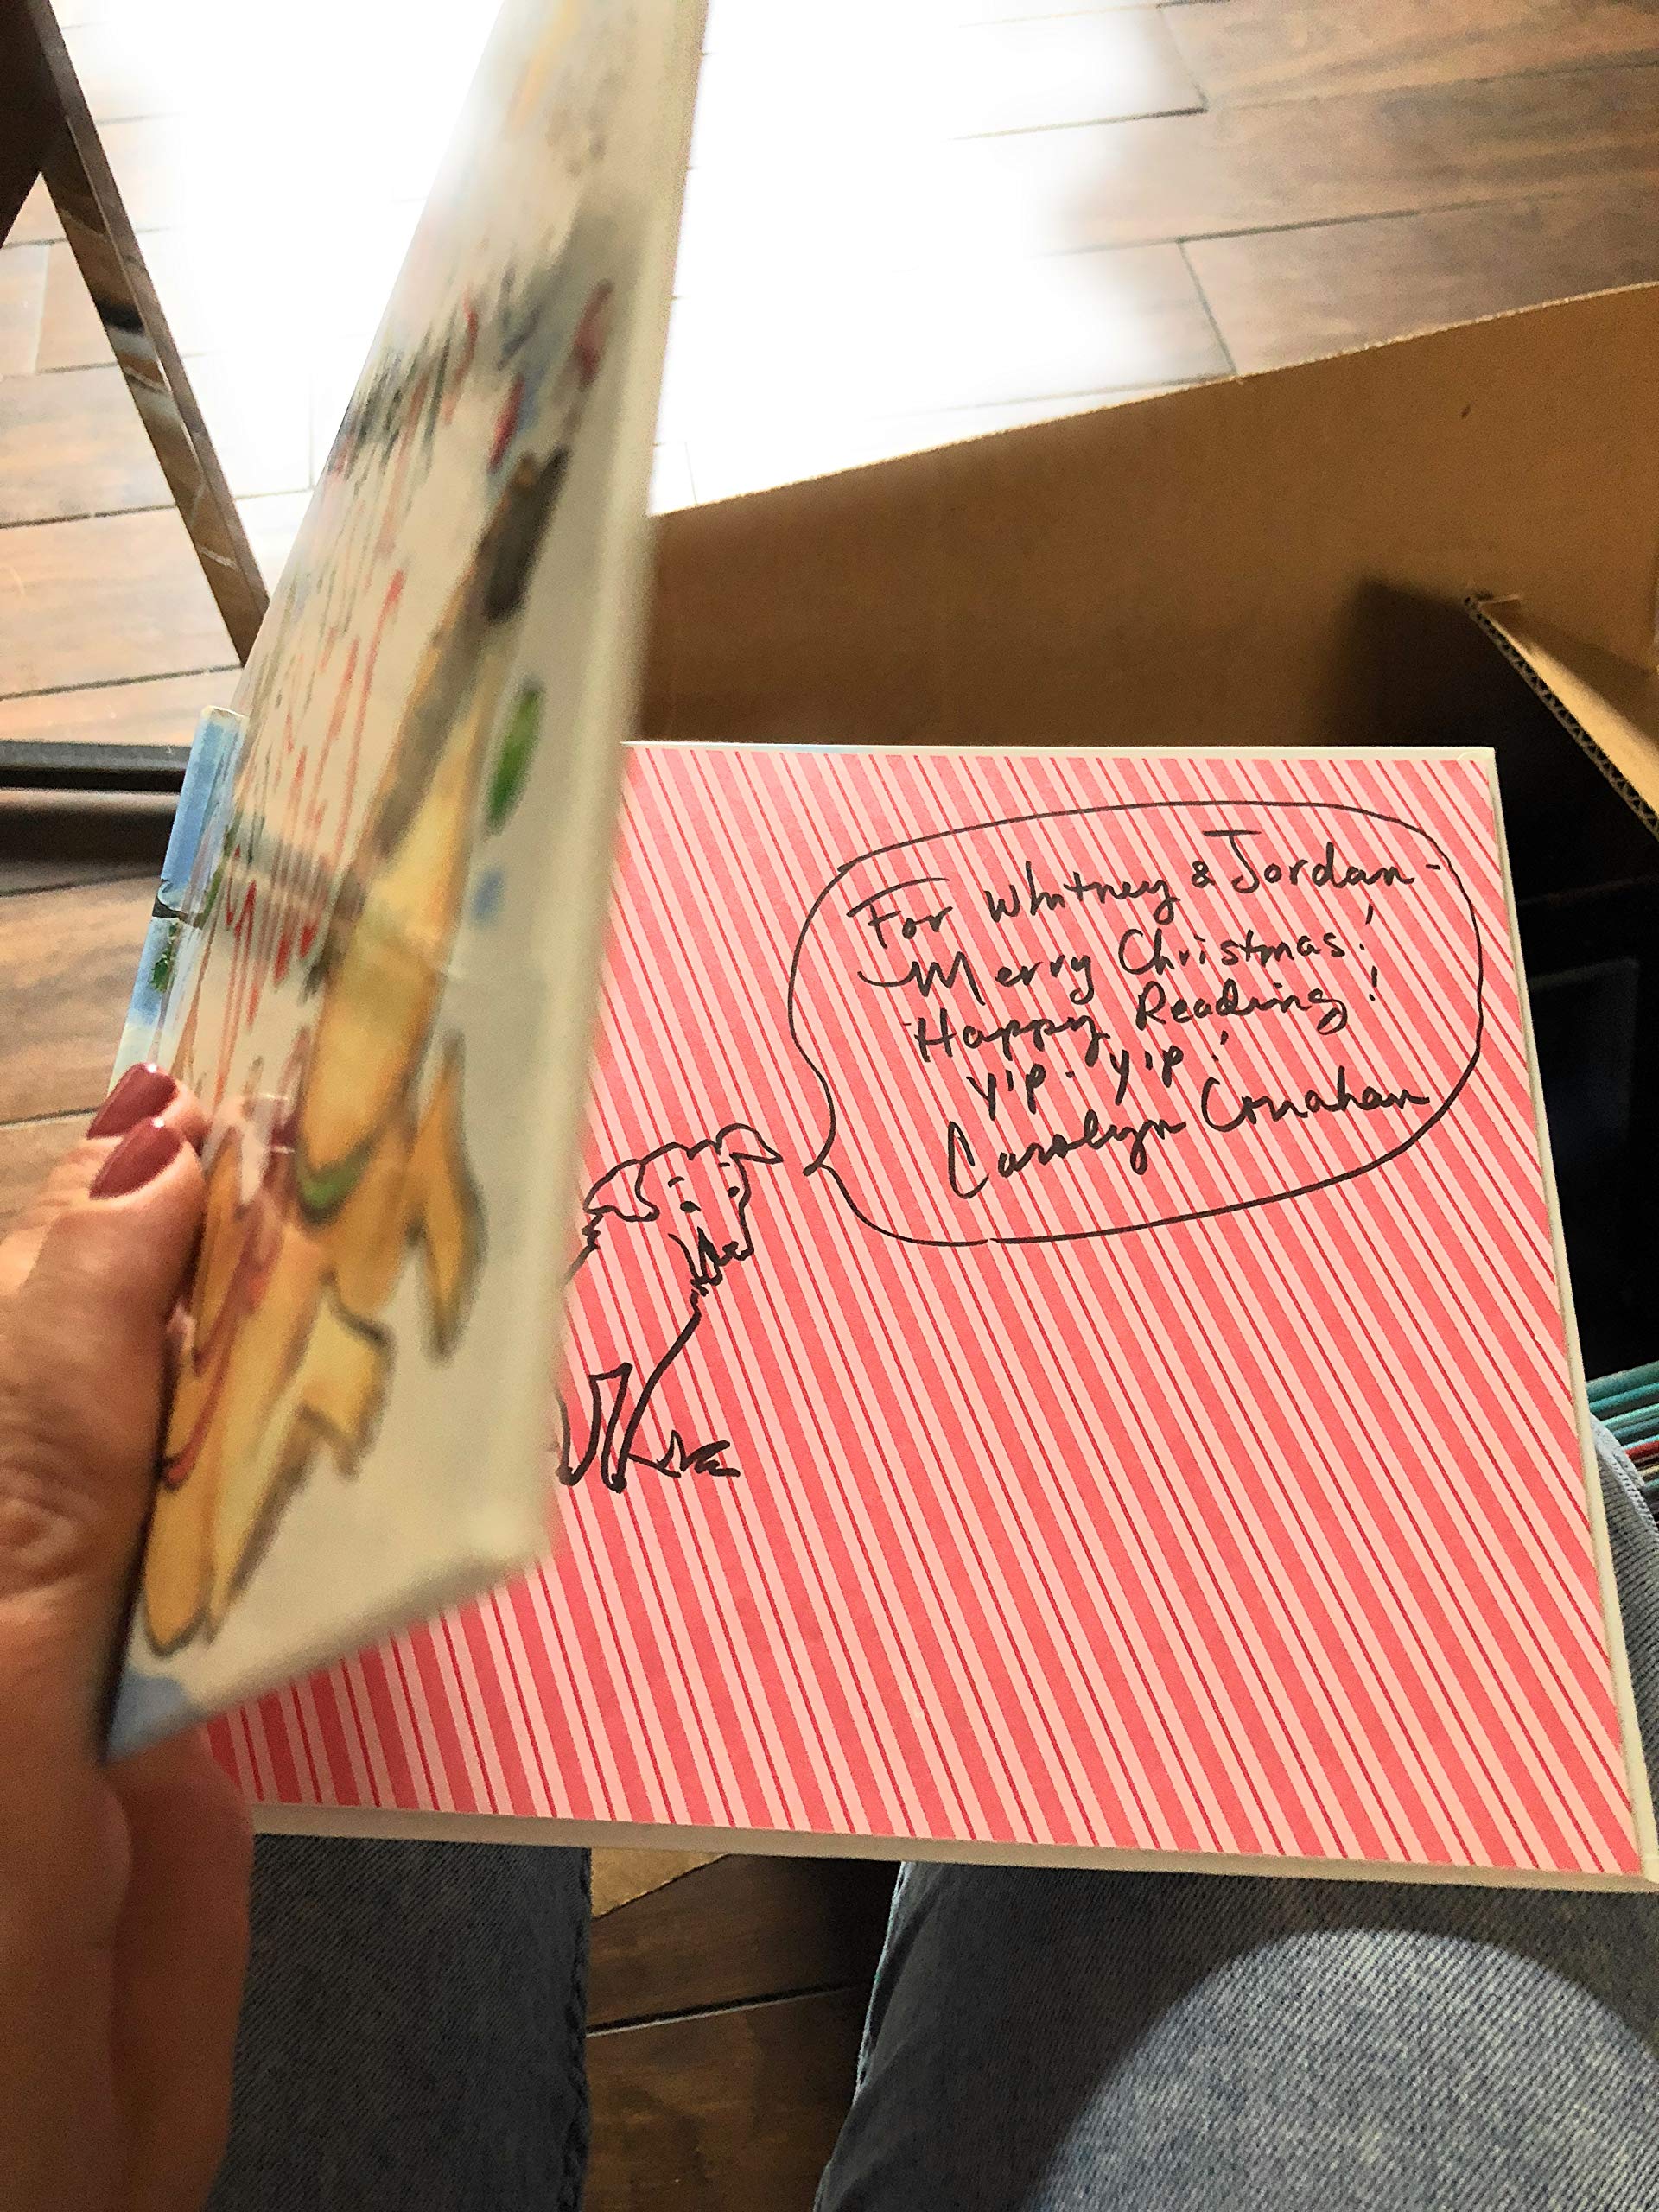 For Whitney & Jordan-
Merry Christmas!
Happy Reading!
Yip. Yip!
Carolyn Conahan